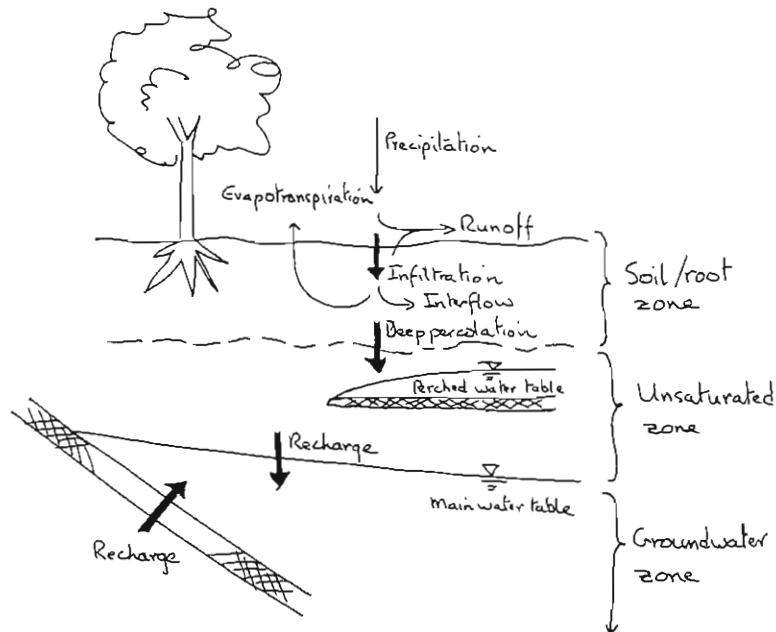 Precipitation
Evapotranspiration
Runoff
Infiltration
Interflow
Soil/root
zone
Deep percolation
Perched water table
Unsaturated
zone
Recharge
main water table
Recharge
Groundwater
zone